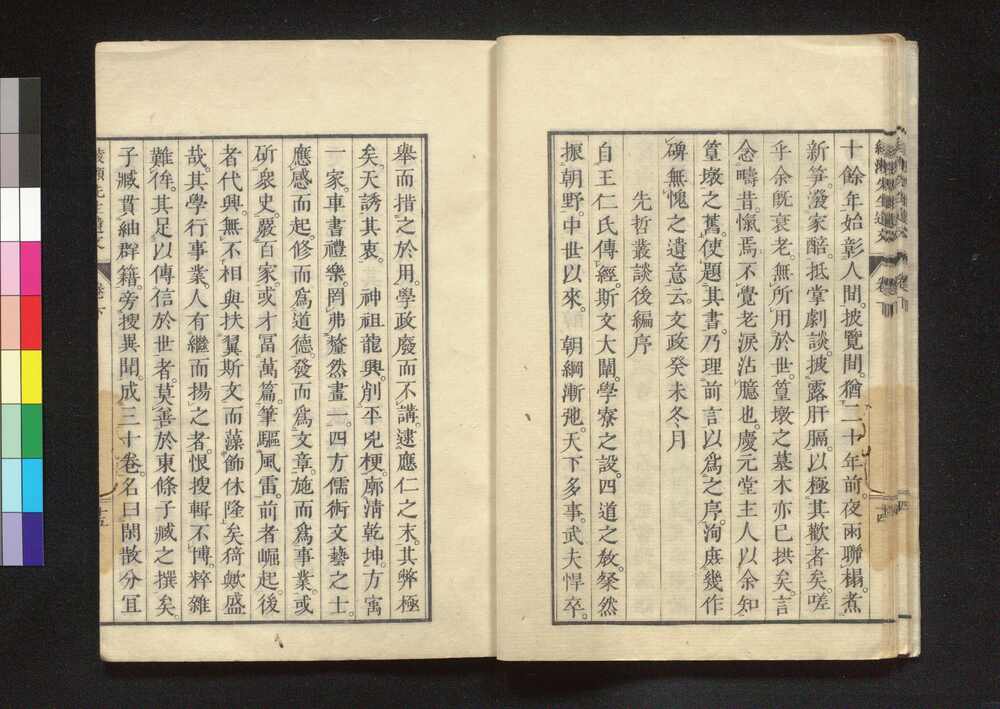 十餘年始彰人間。披覽間。猶二十年前。夜雨聯榻。煮
新篘。潑家醅。抵掌劇談。披露肝膈。以極其歡者矣。嗟
乎余既衰老。無所用於世。篁墩之墓木亦已拱矣。言
念疇昔。愾焉不覺老淚沾臆也。慶元堂主人以余知
篁墩之舊。使題其書。乃理前言以爲之序。洵庶幾作
碑無愧之遺意云。文政癸未冬月
先哲叢談後編序
自王仁氏傳經。斯文大闡。學寮之設。四道之敎。粲然
振朝野。中世以來。朝綱漸弛。天下多事。武夫悍卒。
擧而措之於用。學政廢而不講。逮應仁之末。其弊極
矣。天誘其衷。神祖龍興。削平兇梗。廓淸乾坤。方寓
一家。車書禮樂。罔弗釐然畫一。四方儒術文藝之士。
應感而起。修而爲道德。發而爲文章。施而爲事業。或
斫衆史。嚴百家。或才冨萬篇。筆驅風雷。前者崛起。後
者代興。無不相與扶翼斯文而藻飾休隆矣。猗歟盛
哉。其學行事業。人有繼而揚之者。恨搜輯不博。粹雜
難侔。其足以傳信於世者。莫善於東條子臧之撰矣。
子臧貫紬群籍。旁搜異聞。成三十卷。名曰閑散分宜
綾瀬先生遺文 卷下 十五